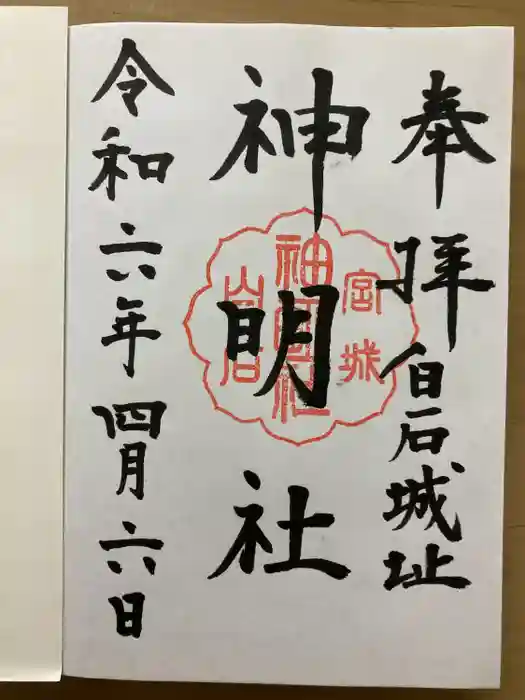 奉拝
白石城址
神明社
宮城
神明社
白石
令和六年四月六日